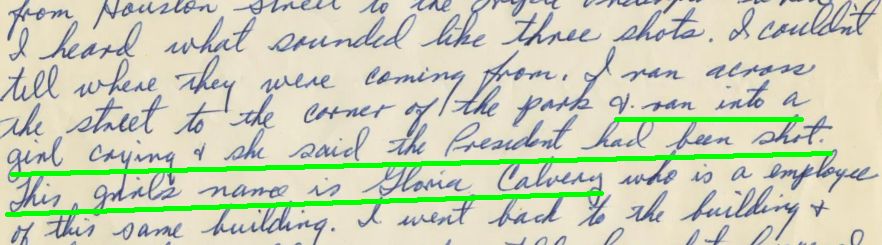 from Houston Street to the
I heard what sounded like three shots. I couldn't
tell where they were coming from. I ran across
the street to the corner of the park & ran into a
girl crying & she said the President had been shot.
This girl's name is Gloria Calvery who is a employee
of this same building. I went back to the building &